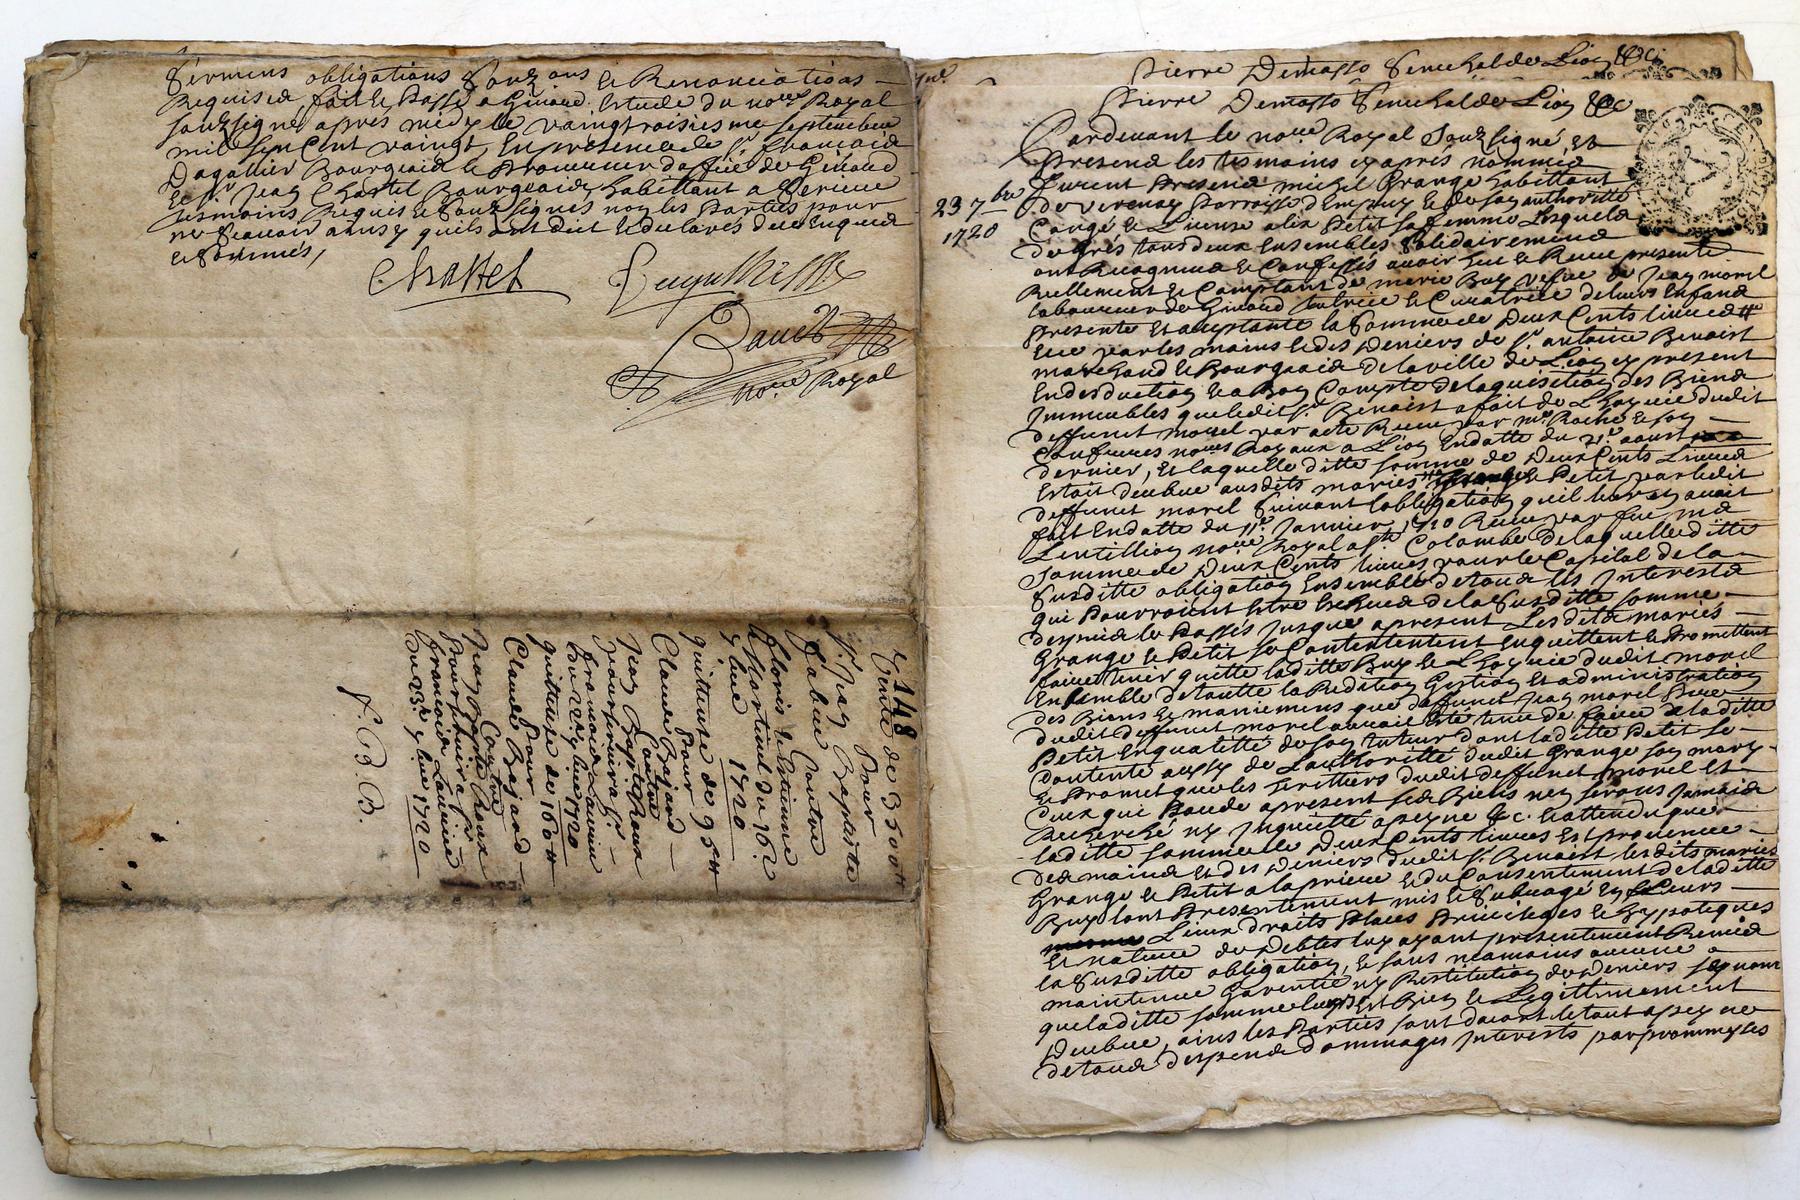 Sermens obligations Soubz ons & Renonciations
Requises, fait & Passé a Givord Estude du no.re Royal
soubsigné apres midy le vaingtroisiesme septembre
mil sept Cent vaingt, En presence de S.r françois
Dagallier Bourgeois & Procureur d'office de Givord
Et S.r Jean Chastel Bourgeois habittant a
tesmoins Requis & Soubsignés non les Parties pour
ne Scavoir ainsy quils ont dict & declarés de ce Enquis
& Sommés,
Chastel
no.re Royal
148
Vente de 3500 tt
Pour
S.r Jean Baptiste
Contre
Floris & Estienne
Martinel du 16.e
7bre 1720
quittance de 95 tt
Pour
Claude Bajard
Contre
Jean Baptiste Roux
françois Laurier
du 22 7bre 1720
quittance de 160 tt
Pour
Claude Bajard
Contre
Jean Baptiste Roux
françois Laurier
du 23.e 7bre 1720
f. B. B.
Pierre Demasso Senechal de Lion &c
Pierre Demasso Senechal de Lion &c
23 7bre
1720
Pardevant le no.re Royal Soubzsigné, Et
presens les tesmoins cy apres nommés
furent Presens michel Grange habittant
de verenay Parroisse d'Empuy & de son authoritté
Congé & Licence alix Petit sa femme Lesquels
de gres tous deux Ensembles Solidairement
ont Recogneus & Confessés avoir heu & Receu presente
Reellement & Comptant de marie Buy vefve de Jean morel
laboureur de Givord tutrice & Curatrice de leurs Enfans
presente Et acceptante la Somme de Deux Cents livres
Ecce par les mains & des Deniers de S.r antoine Benoist
marchand & Bourgeois de la ville de Lion cy present
En desduction & a Bon Compte de laquisition des Biens
Immeubles que ledit S.r Benoist a fait de L'hoyrie dudit
deffunct morel par acte Receu par m.e Roche & son
Confreres no.res Royaux a Lion Endatte du 21.e aoust
dernier, Et laquelle ditte somme de Deux Cents Livres
Estoit deubue ausdits mariés Grange & Petit par ledit
deffunct morel Suivant l'obligation qu'il leur en avoit
fait Endatte du 11.e Janvier 1710 Receu par feu m.e
Lentillion no.re Royal a S.te Colombe de laquelle ditte
Somme de Deux Cents livres pour le Capital de la
Susditte obligation Ensemble de tous les Interests
qui Pourroient Estre Escheus de la Susditte somme
despuis le Passés Jusque apresent Les dits mariés
Grange & Petit se Contententent En quittent & Promettent
faire tenir quitte laditte Buy & L'hoyrie dudit morel
Ensemble de toutte la Reddition Gestion Et administration
des Biens & maniemens que deffunct Jean morel Pere
dudit deffunct morel auroit Esté tenu de faire a laditte
Petit En qualitté de son tuteur dont laditte Petit se
Contente aussy de L'authoritté dudit Grange son mary
& Promet que les heritiers dudit deffunct morel Et
Ceux qui Possede apresent ses Biens n'en seront Jamais
Recherché ny Inquietté a peyne &c. & attendu que
laditte somme de Deux Cents livres Est provenue
des mains Et des Deniers dudit S.r Benoist lesdits mariés
Grange & Petit a la priere & du Consentement de laditte
Buy l'ont Presentement mis & Subrogé En Leurs
Lieux droits Places Privileges & hypoteques
Et nature de Debtes luy ayant presentement Remis
la Susditte obligation, & sans neamoins aucune
maintenue Garentie ny Restitution de Deniers sinon
que laditte somme leur Est Bien & Legittimement
Deubue, ains les Parties sont dacort & tout a peyne
de tous despens Dommages Interests par prommesses